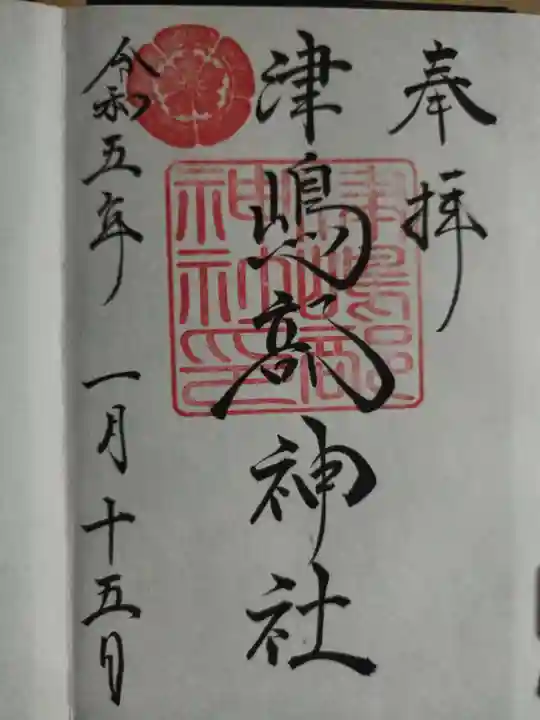 奉拝
津嶋部神社
令和五年 一月十五日
津嶋部神社印